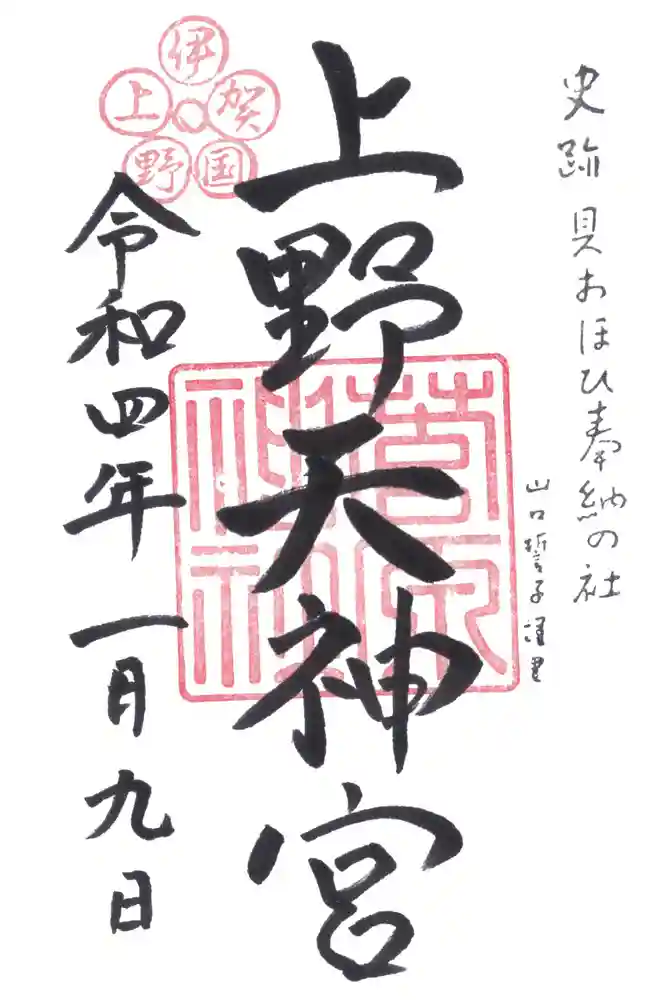 史跡 貝おほひ奉納の社
山口誓子謹書
上野天神宮
菅原神社
伊賀国上野
令和四年一月九日